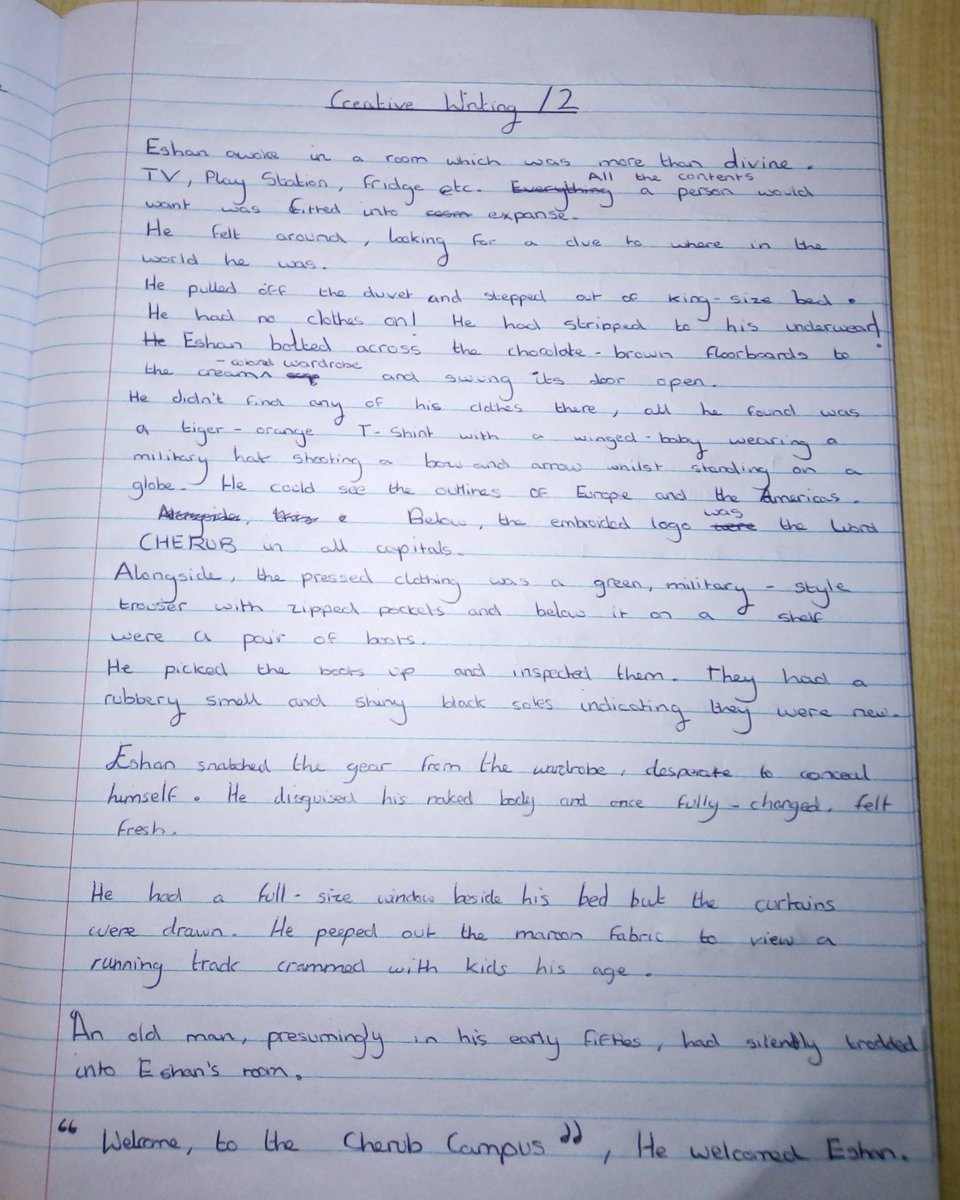 Creative Writing /2
Eshan awoke in a room which was more than divine.
TV, Play Station, fridge etc. Everything All the contents a person would
want was fitted into room expanse.
He felt around, looking for a clue to where in the
world he was.
He pulled off the duvet and stepped out of king-size bed.
He had no clothes on! He had stripped to his underwear!
He Eshan bolted across the chocolate-brown floorboards to
the cream -colord wardrobe and swung its door open.
He didn't find any of his clothes there, all he found was
a tiger-orange T-Shirt with a winged-baby wearing a
military hat shooting a bow and arrow whilst standing on a
globe. He could see the outlines of Europe and the Americas.
Below, the embroided logo was were the word
CHERUB in all capitals.
Alongside, the pressed clothing was a green, military-style
trouser with zipped pockets and below it on a shelf
were a pair of boots.
He picked the boots up and inspected them. They had a
rubbery smell and shiny black soles indicating they were new.
Eshan snatched the gear from the wardrobe, desparate to conceal
himself. He disguised his naked body and once fully-changed, felt
fresh.
He had a full-size window beside his bed but the curtains
were drawn. He peeped out the maroon fabric to view a
running track crammed with kids his age.
An old man, presumingly in his early fifties, had silently tredded
into Eshan's room.
"Welcome, to the Cherub Campus", He welcomed Eshan.